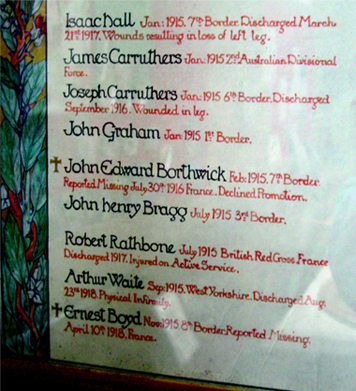 Isaac Hall Jan: 1915. 7th Border. Discharged March
21st 1917. Wounds resulting in loss of left leg.
James Carruthers Jan: 1915 2nd Australian Divisional
Force.
Joseph Carruthers Jan: 1915 6th Border. Discharged
September 1916. Wounded in leg.
John Graham Jan 1915 1st Border.
John Edward Borthwick Feb: 1915. 7th Border.
Reported Missing July 30th 1916 France. Declined Promotion.
John Henry Bragg July 1915 3rd Border.
Robert Rathbone July 1915 British Red Cross France
Discharged 1917. Injured on Active Service.
Arthur Waite Sep: 1915. West Yorkshire. Discharged Aug.
23rd 1918. Physical Infirmity.
Ernest Boyd Nov: 1915. 8th Border. Reported Missing.
April 10th 1918, France.